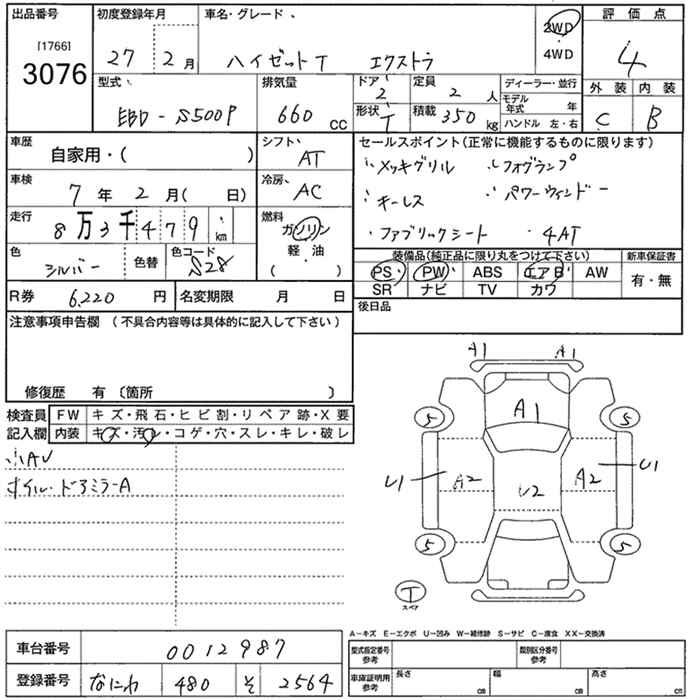 出品番号 初度登録年月 車名・グレード 2WD 評価点
[1766] 3076 27 2月 ハイゼットT エクストラ 4WD 4
型式 排気量 ドア 2 定員 2 人 ディーラー・並行 外装 内装
EBD-S500P 660 cc 形状 T 積載 350 kg モデル年式 年 C B
ハンドル 左・右
車歴 自家用・( ) シフト AT セールスポイント(正常に機能するものに限ります)
メッキグリル フォグランプ
車検 7年2月( 日) 冷房 AC キーレス パワーウィンドー
走行 8万3千479 km 燃料 ガソリン 軽・油 ( ・ ) ファブリックシート 4AT
色 シルバー 色替 色コード S28 装備品(純正品に限り丸をつけて下さい) 新車保証書
PS PW ABS エアB AW 有・無
R券 6,220 円 名変期限 月 日 SR ナビ TV カワ
注意事項申告欄 (不具合内容等は具体的に記入して下さい) 後日品
修復歴 有 〔箇所 〕
検査員 FW キズ・飛石・ヒビ割・リペア跡・X要
記入欄 内装 キズ・汚レ・コゲ・穴・スレ・キレ・破レ
小AU
オイル・ドアミラーA
A1 A1
5 A1 5
U1 A2 U2 A2 U1
5 5
T
スペア
A-キズ E-エクボ U-凹み W-補修跡 S-サビ C-腐食 XX-交換済
車台番号 0012987 型式指定番号 参考 類別区分番号 参考
登録番号 なにわ 480 そ 2564 車庫証明用 参考 長さ cm 幅 cm 高さ cm